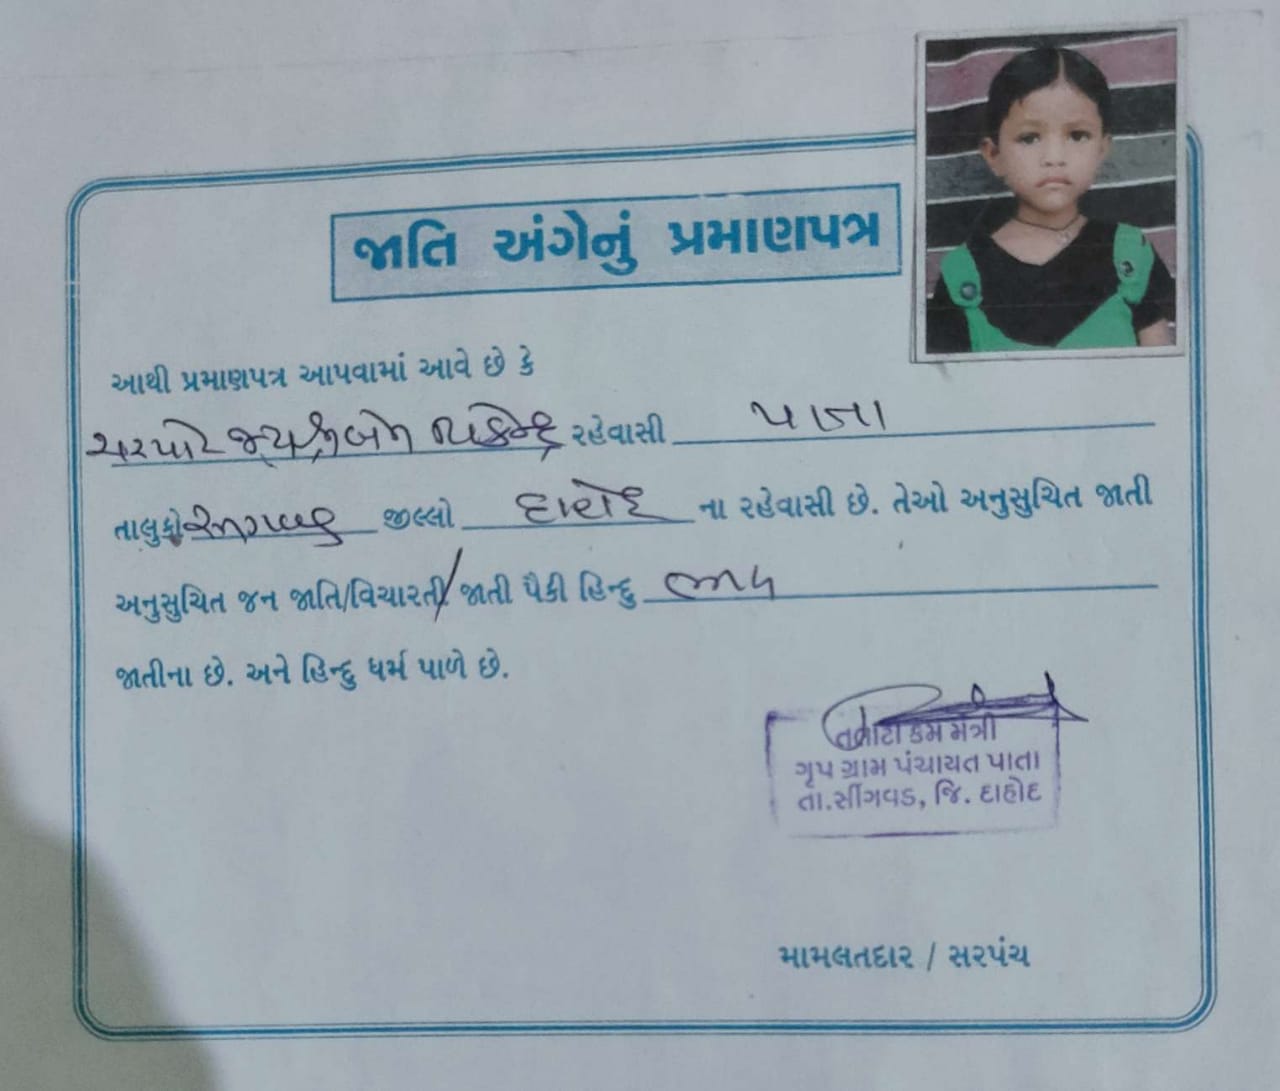 જાતિ અંગેનું પ્રમાણપત્ર
આથી પ્રમાણપત્ર આપવામાં આવે છે કે
ચરપોટ જયશ્રીબેન રહેવાસી પાતા
તાલુકો જીલ્લો દાહોદ ના રહેવાસી છે. તેઓ અનુસુચિત જાતી
અનુસુચિત જન જાતિ/વિચારતી/ જાતી પૈકી હિન્દુ
જાતીના છે. અને હિન્દુ ધર્મ પાળે છે.
તલાટી કમ મંત્રી
ગૃપ ગ્રામ પંચાયત પાતા
તા.સીંગવડ, જિ. દાહોદ
મામલતદાર / સરપંચ